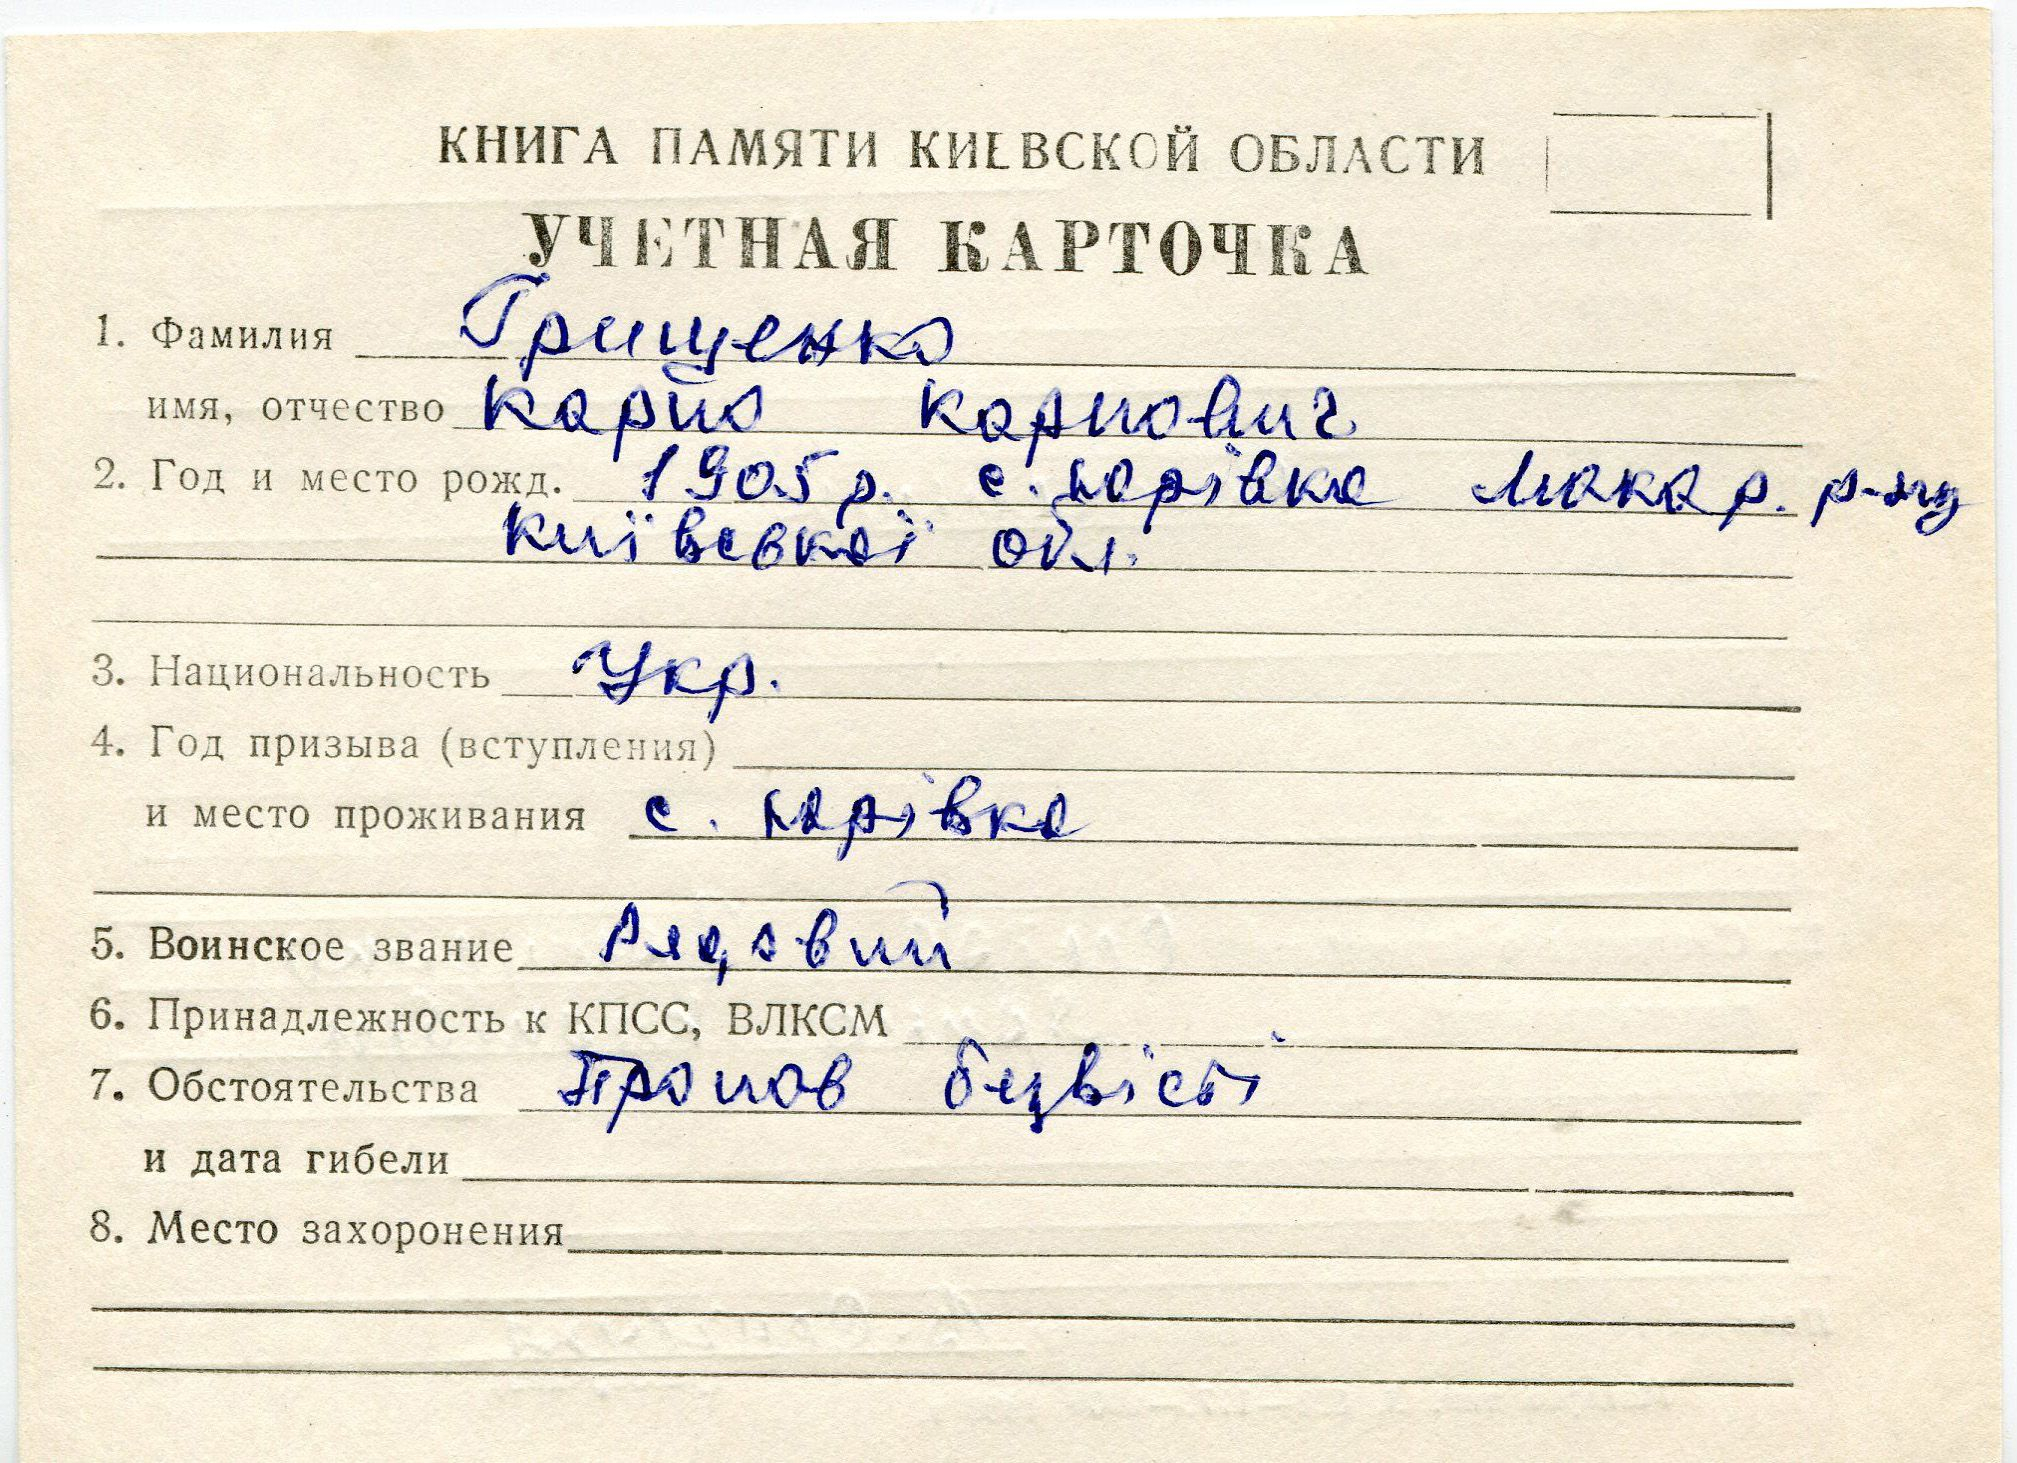 КНИГА ПАМЯТИ КИЕВСКОЙ ОБЛАСТИ
УЧЕТНАЯ КАРТОЧКА
1. Фамилия Грищенко
имя, отчество Карпо Карпович
2. Год и место рожд. 1905 р. с. Юрівка Макар. р-ну
Київської обл.
3. Национальность Укр.
4. Год призыва (вступления)
и место проживания с. Юрівка
5. Воинское звание Рядовий
6. Принадлежность к КПСС, ВЛКСМ
7. Обстоятельства Пропов безвісті
и дата гибели
8. Место захоронения